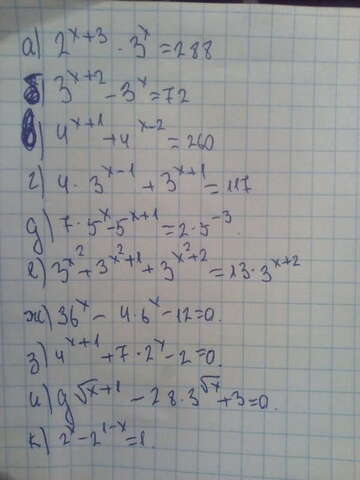 а) 2^{x+3} · 3^x = 288
б) 3^{x+2} - 3^x = 72
в) 4^{x+1} + 4^{x-2} = 260
г) 4 · 3^{x-1} + 3^{x+1} = 117
д) 7 · 5^x - 5^{x+1} = 2 · 5^{-3}.
е) 3^{x^2} + 3^{x^2+1} + 3^{x^2+2} = 13 · 3^{x+2}
ж) 36^x - 4 · 6^x - 12 = 0.
з) 4^{x+1} + 7 · 2^x - 2 = 0.
и) 9^{√x+1} - 28 · 3^{√x} + 3 = 0.
к) 2^x - 2^{1-x} = 1.